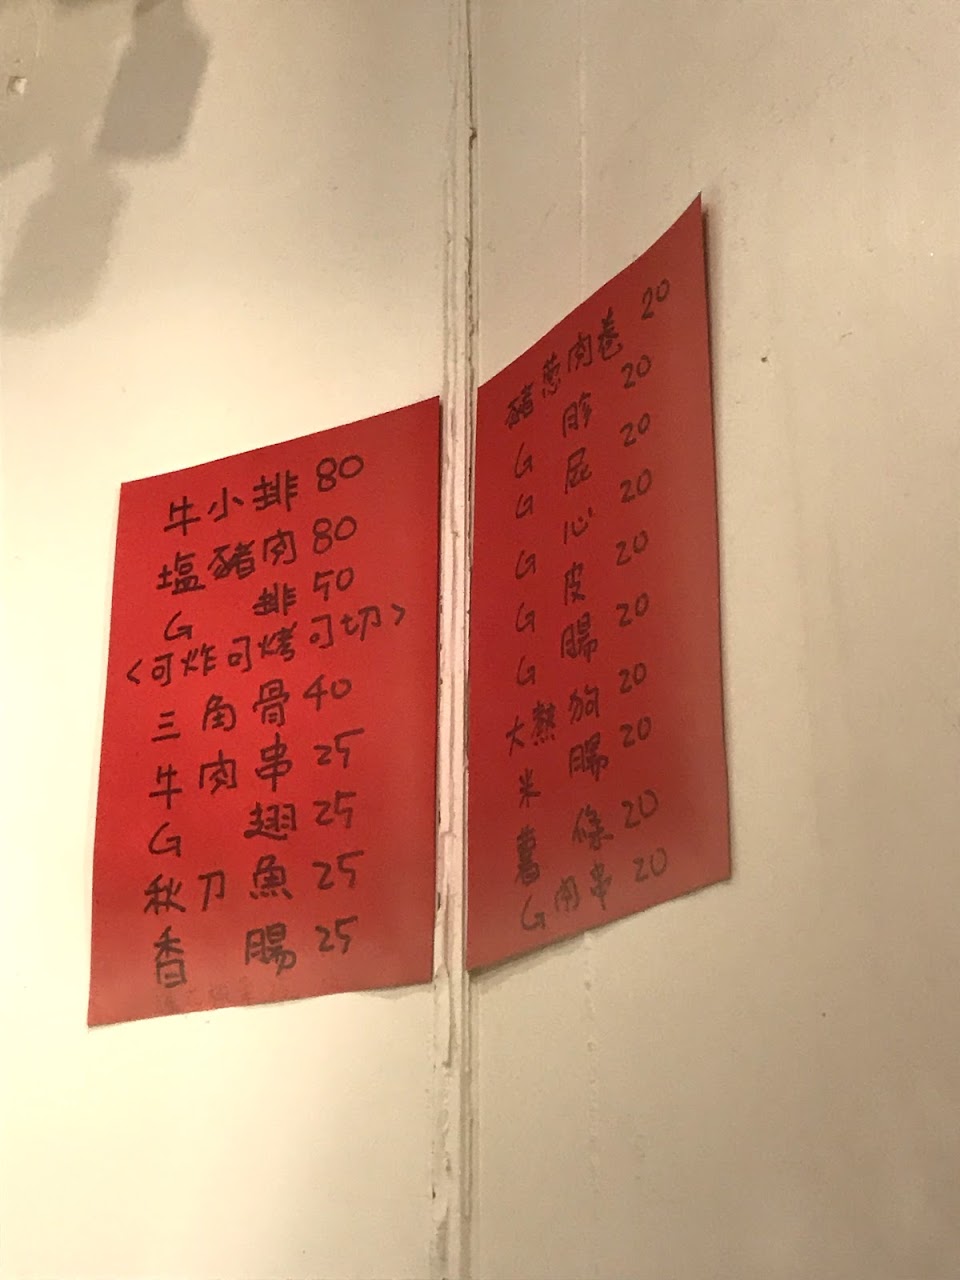 牛小排 80
塩豬肉 80
G 排 50
<可炸可烤可切>
三角骨 40
牛肉串 25
G 翅 25
秋刀魚 25
香腸 25
豬蔥肉卷 20
G 胗 20
G 屁 20
G 心 20
G 皮 20
G 腸 20
大熱狗 20
米腸 20
薯條 20
G肉串 20